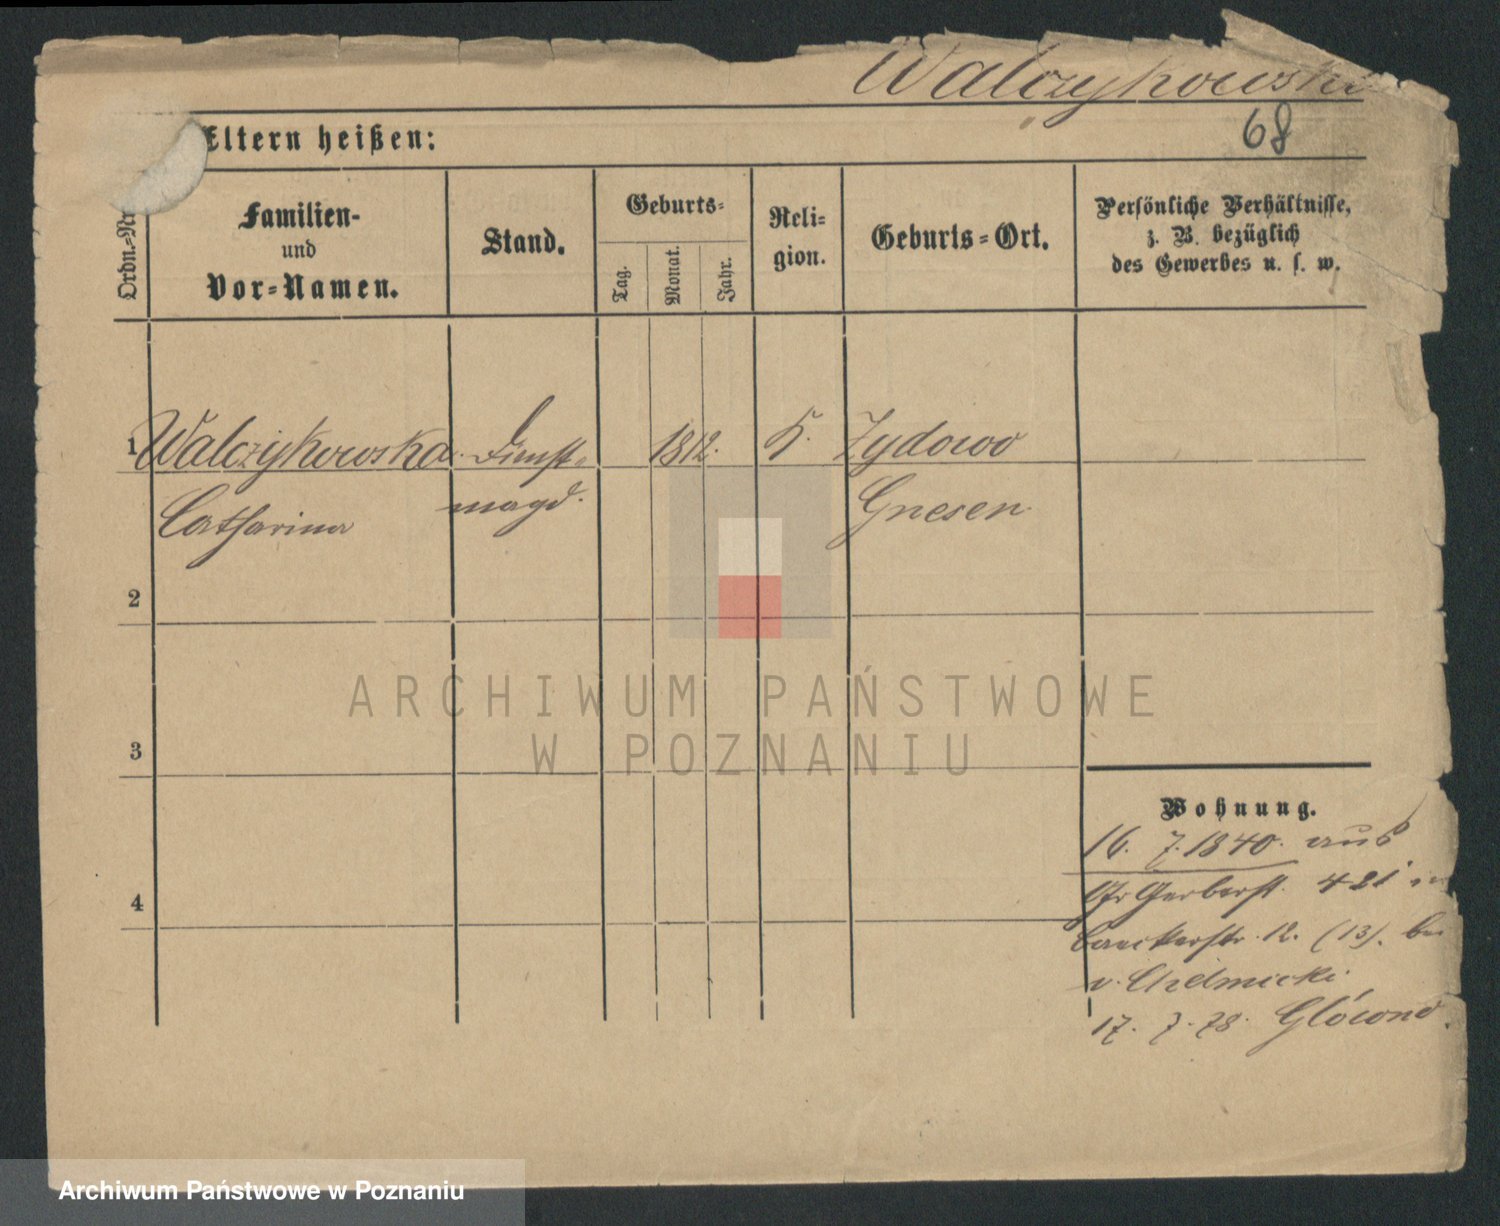 Walczykowski
68
Eltern heißen:
Ordn.-Nr.
Familien-
und
Vor-Namen.
Stand.
Geburts-
Tag.
Monat.
Jahr.
Reli-
gion.
Geburts-Ort.
Persönliche Verhältnisse,
z. B. bezüglich
des Gewerbes u. s. w.
1 Walczykowska Dienst- 1812. K. Zydowo
Catharina magd. Gnesen
2
3
4
Wohnung.
16. 7. 1840. aus
Gr Gerberst. 421 in
12. (13). bei
v. Chelmicki
17. 7. 78.
ARCHIWUM PAŃSTWOWE
W POZNANIU
Archiwum Państwowe w Poznaniu